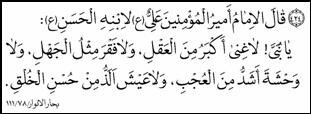 ٤٢٤ قَالَ الاِمَامُ أَمِيرُ الْمُؤْمِنِينَ عَلِيٌّ (ع) لاِبْنِهِ الْحَسَنِ (ع):
يَا بُنَيَّ! لاَ غِنىٰ أَكْبَرُ مِنَ الْعَقْلِ، وَلاَ فَقْرَ مِثْلُ الْجَهْلِ، وَلاَ
وَحْشَةَ أَشَدُّ مِنَ الْعُجْبِ، وَلاَ عَيْشَ أَلَذُّ مِنْ حُسْنِ الْخُلْقِ.
بحار الانوار ٧٨/١١١